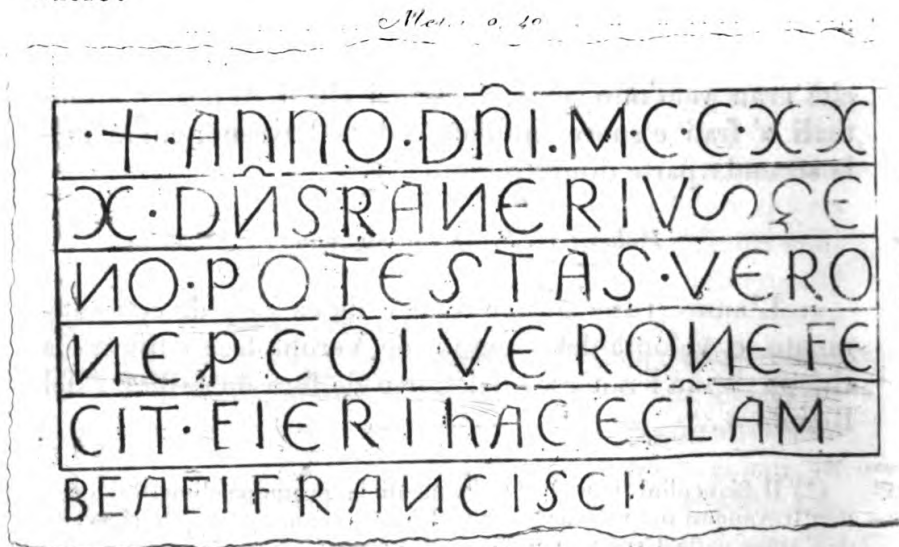 · + · ANNO · DNI . MC · C · XX
X · DNS RANERIVS ÇE
NO · POTESTAS · VERO
NE P COI VERONE FE
CIT · FIERI hAC ECLAM
BEATI FRANCISCI